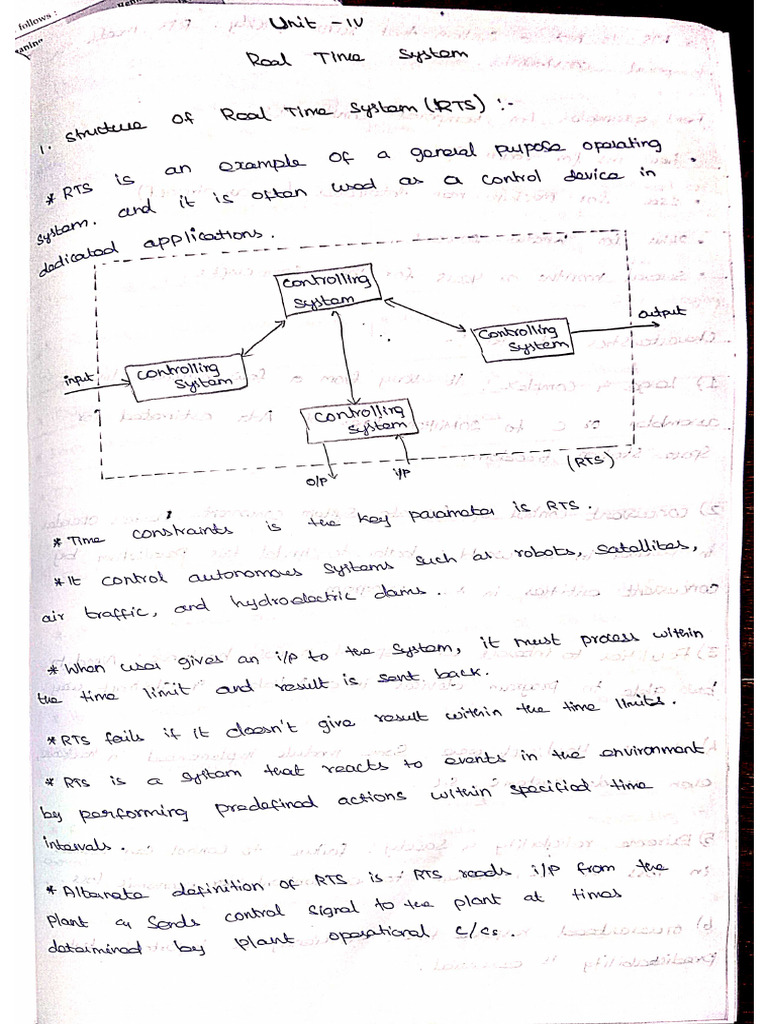 follows :
Unit - IV
Real Time System
1. Structure of Real Time System (RTS) :-
* RTS is an example of a general purpose operating
system. and it is often used as a control device in
dedicated applications.
controlling
system
output
controlling
system
input
controlling
system
controlling
system
O/P
i/P
(RTS)
* Time constraints is the key parameter is RTS.
* It control autonomous systems such as robots, satallites,
air traffic, and hydroelectric dams.
* When user gives an i/p to the system, it must process within
the time limit and result is sent back.
* RTS fails if it doesn't give result within the time limits.
* RTS is a system that reacts to events in the environment
by performing predefined actions within specified time
intervals.
* Alternate definition of RTS is RTS reads i/p from the
plant & sends control signal to the plant at times
determined by plant operational c/cs.